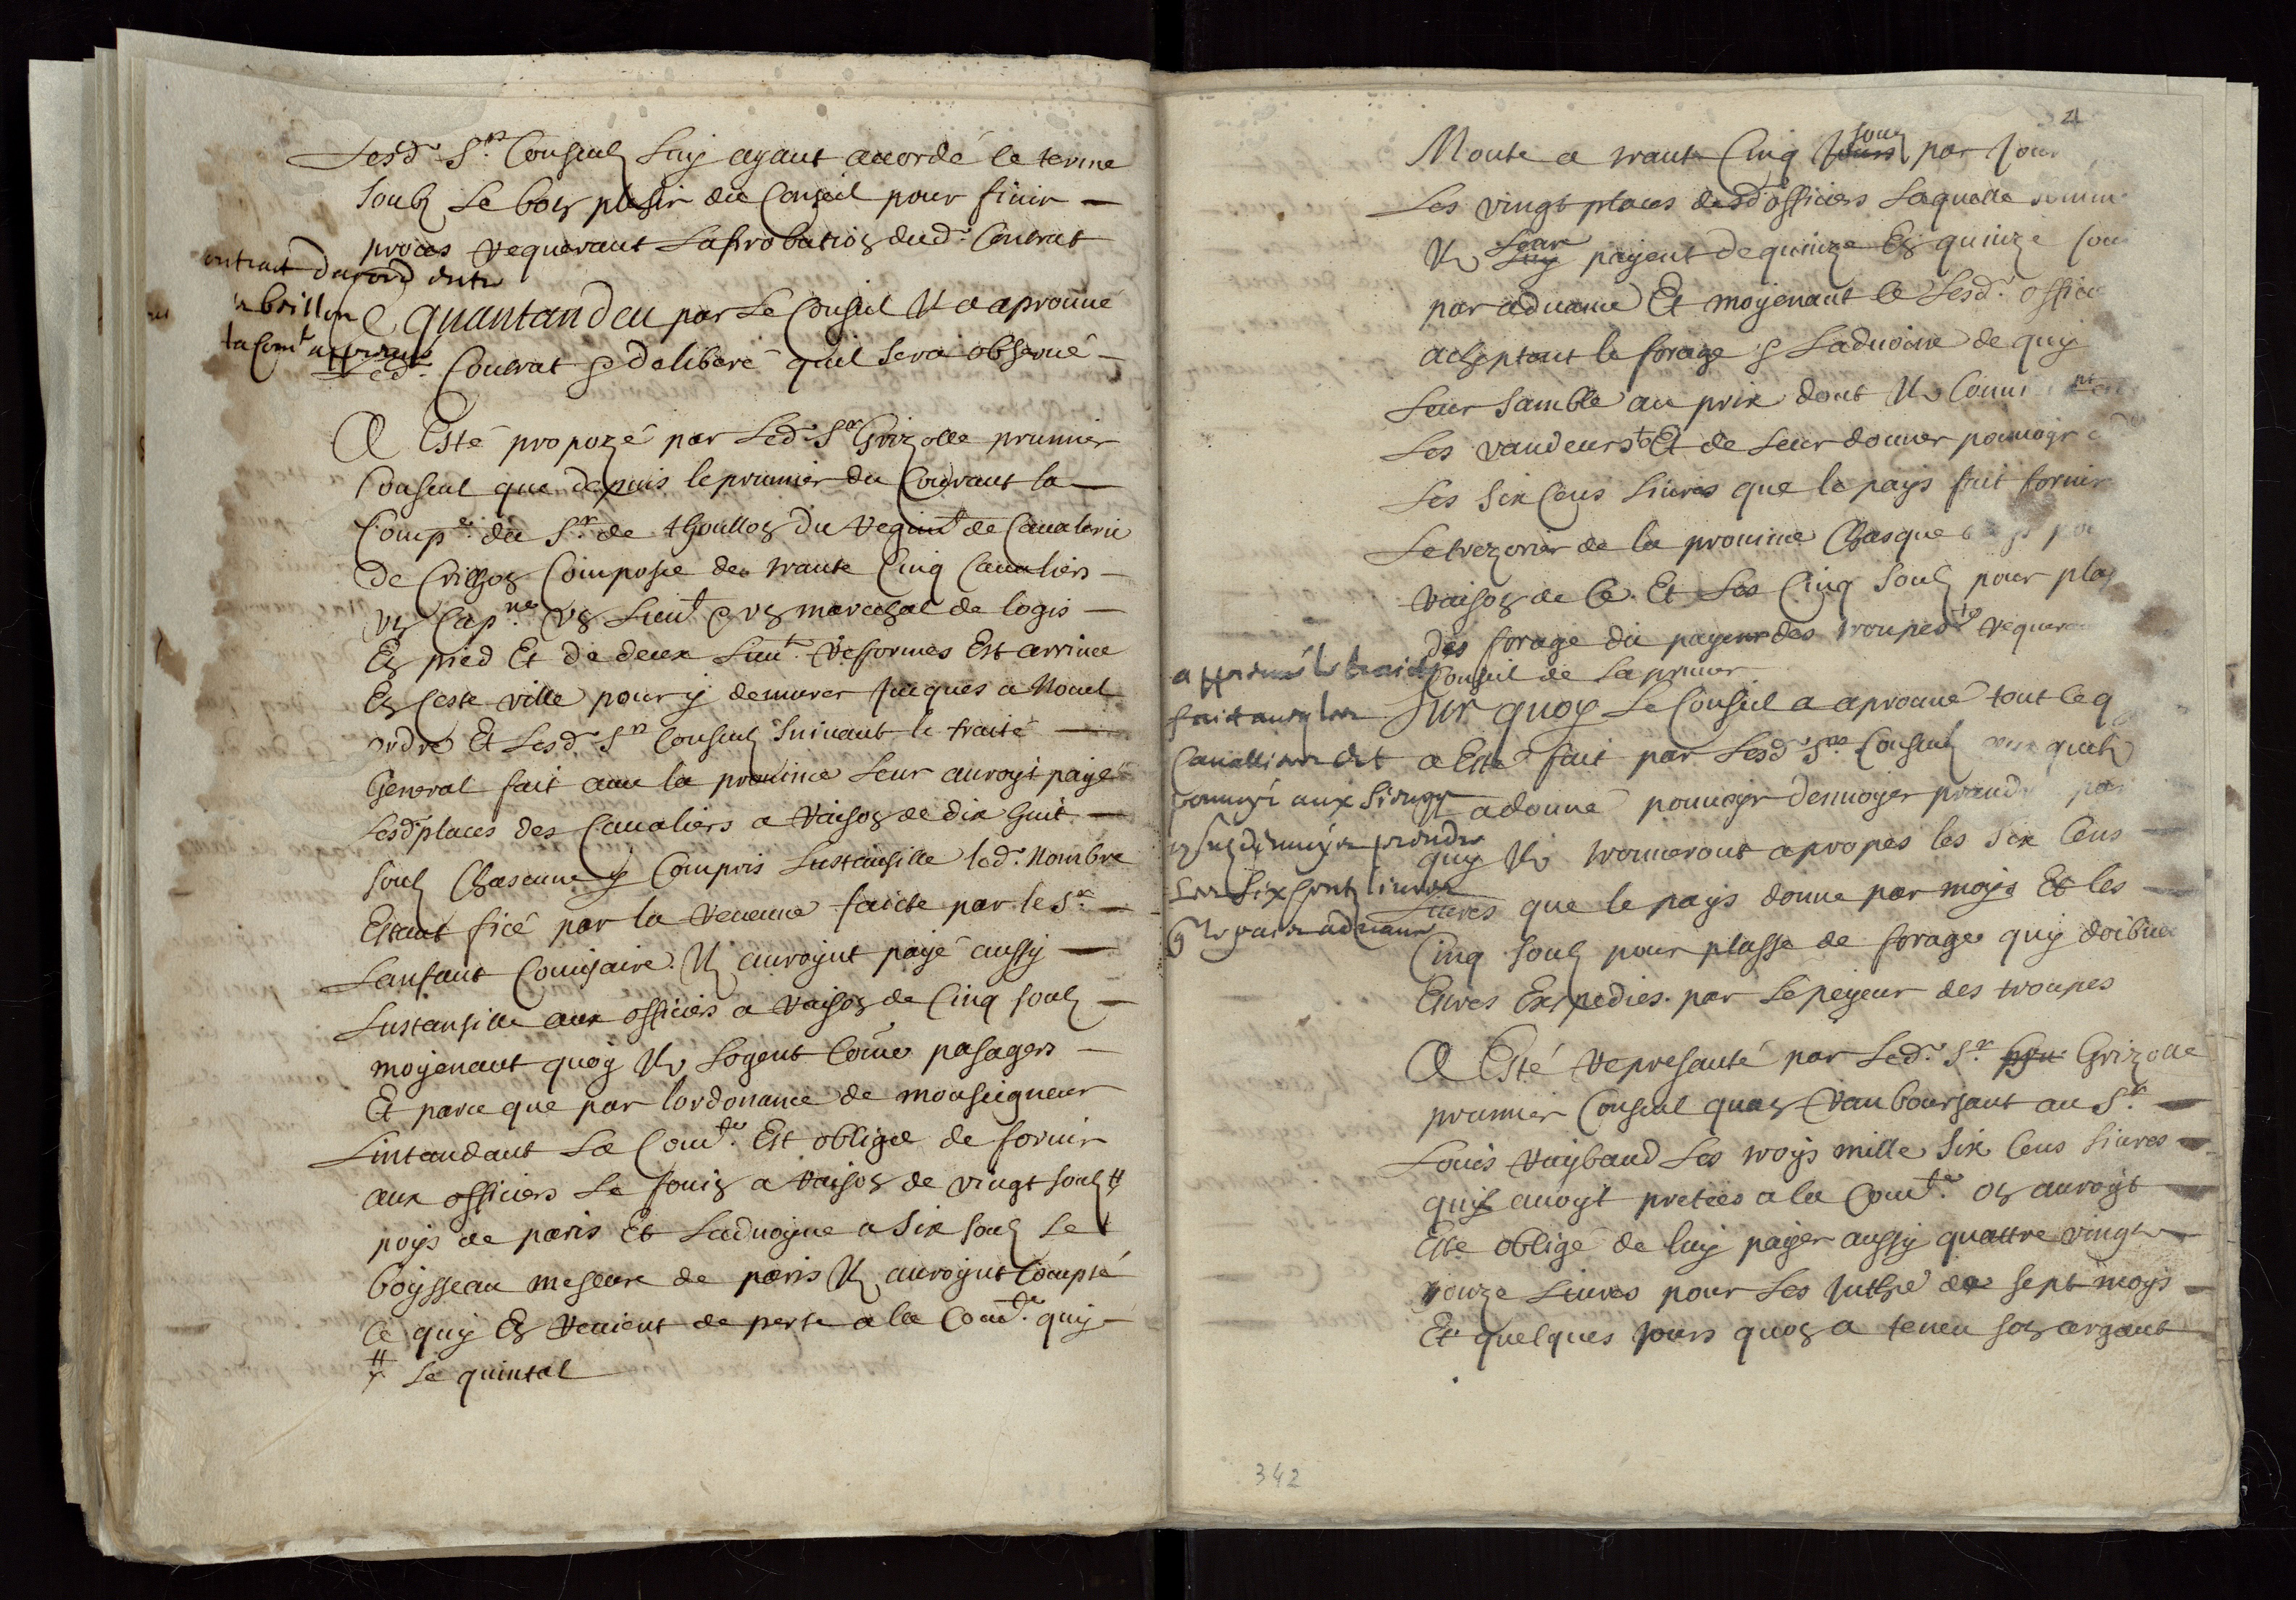 Lesd. Srs Consulz Luy ayant acordé le terme
soubz Le bon plesir du Conseil pour finir
proces requerant Laprobation dud. Contrat
contrat dacord entre
brillon
la Comte approuvé
Ce quantandeu par Le Conseil Il a aprouué
Led. Contrat & deliberé quil sera obserué
A Esté propozé par Led. Sr Grizolle prumier
Consul que depuis le prumier du Courant la
Compe. du Sr. de thoullon du regimt de Caualerie
de Crillon Composée de trante Cinq Caualiers
un Capne. un Lieut & un marechal de logis
En pied Et de deux Lieut. reformes Est arriuee
En ceste ville pour y demurer Jucques a Nouuel
ordre Et Lesd. Srs Consulz suiuant le traité
General fait auec la prouince Leur auroyt payé
Lesd. places des Caualiers a raison de dix huit
soulz Chascune y Compris Lustansille led. Nombre
Estant ficé par la reueue faicte par le Sr.
Lanfant Comisaire. Ilz auroynt payé aussy
Lustansille aux officiers a raison de Cinq soulz
moyenant quoy Ils Logent Come pasagers
Et parce que par lordonance de monseigneur
Lintandant La Comte. Est obligee de fornir
aux officiers Le fouin a raison de vingt soulz #
poys de paris Et Ladvoyne a six soulz Le
boysseau mesure de paris Ilz auroynt Compté
Ce quy En reuient de perte a la Comte. quy
# Le quintal
21
Monte a trante Cinq soulz par Jour
Les vingt places desd. officiers Laquelle somme
Ils Leur payent de quinze En quinze Jours
par aduance Et moyenant ce Lesd. officiers
acheptent le forage & Laduoine de quy
Leur samble au prix dont Ils
Les vandeurs Et de Leur donner pouuoyr
Les six Cens Liures que le pays fait fornir
Le trezorier de la prouince Chasque
raison de Ce. Et Les Cinq soulz pour plasse
des forage du payeur des troupes requerant
Conseil de Laprouuer
approuué le traicté
fait aueq les
Cavalliers et
pouuoyr aux sieurs
consulz denuoyer prendre
Les six cents liures
Sur quoy Le Conseil a aprouué tout ce q
a Esté fait par Lesd. Srs. Consulz
a donné pouuoyr denuoyer prandre par
quy Ils trouueront a propos les six Cens
Liures que le pays donne par moys Et les
Cinq soulz pour plasse de forage quy doibuent
Estres Expedies par Le peyeur des troupes
A Esté represanté par Led. Sr. Grizolle
prumier Consul quen ranboursant au Sr.
Louis Raybaud Les troys mille six Cens Liures
quil auoyt pretees a la Comte. on auroyt
Esté obligé de luy payer aussy quattre vingt
onze Liures pour Les Inthe de sept moys
Et quelques Jours quon a teneu son argant
342